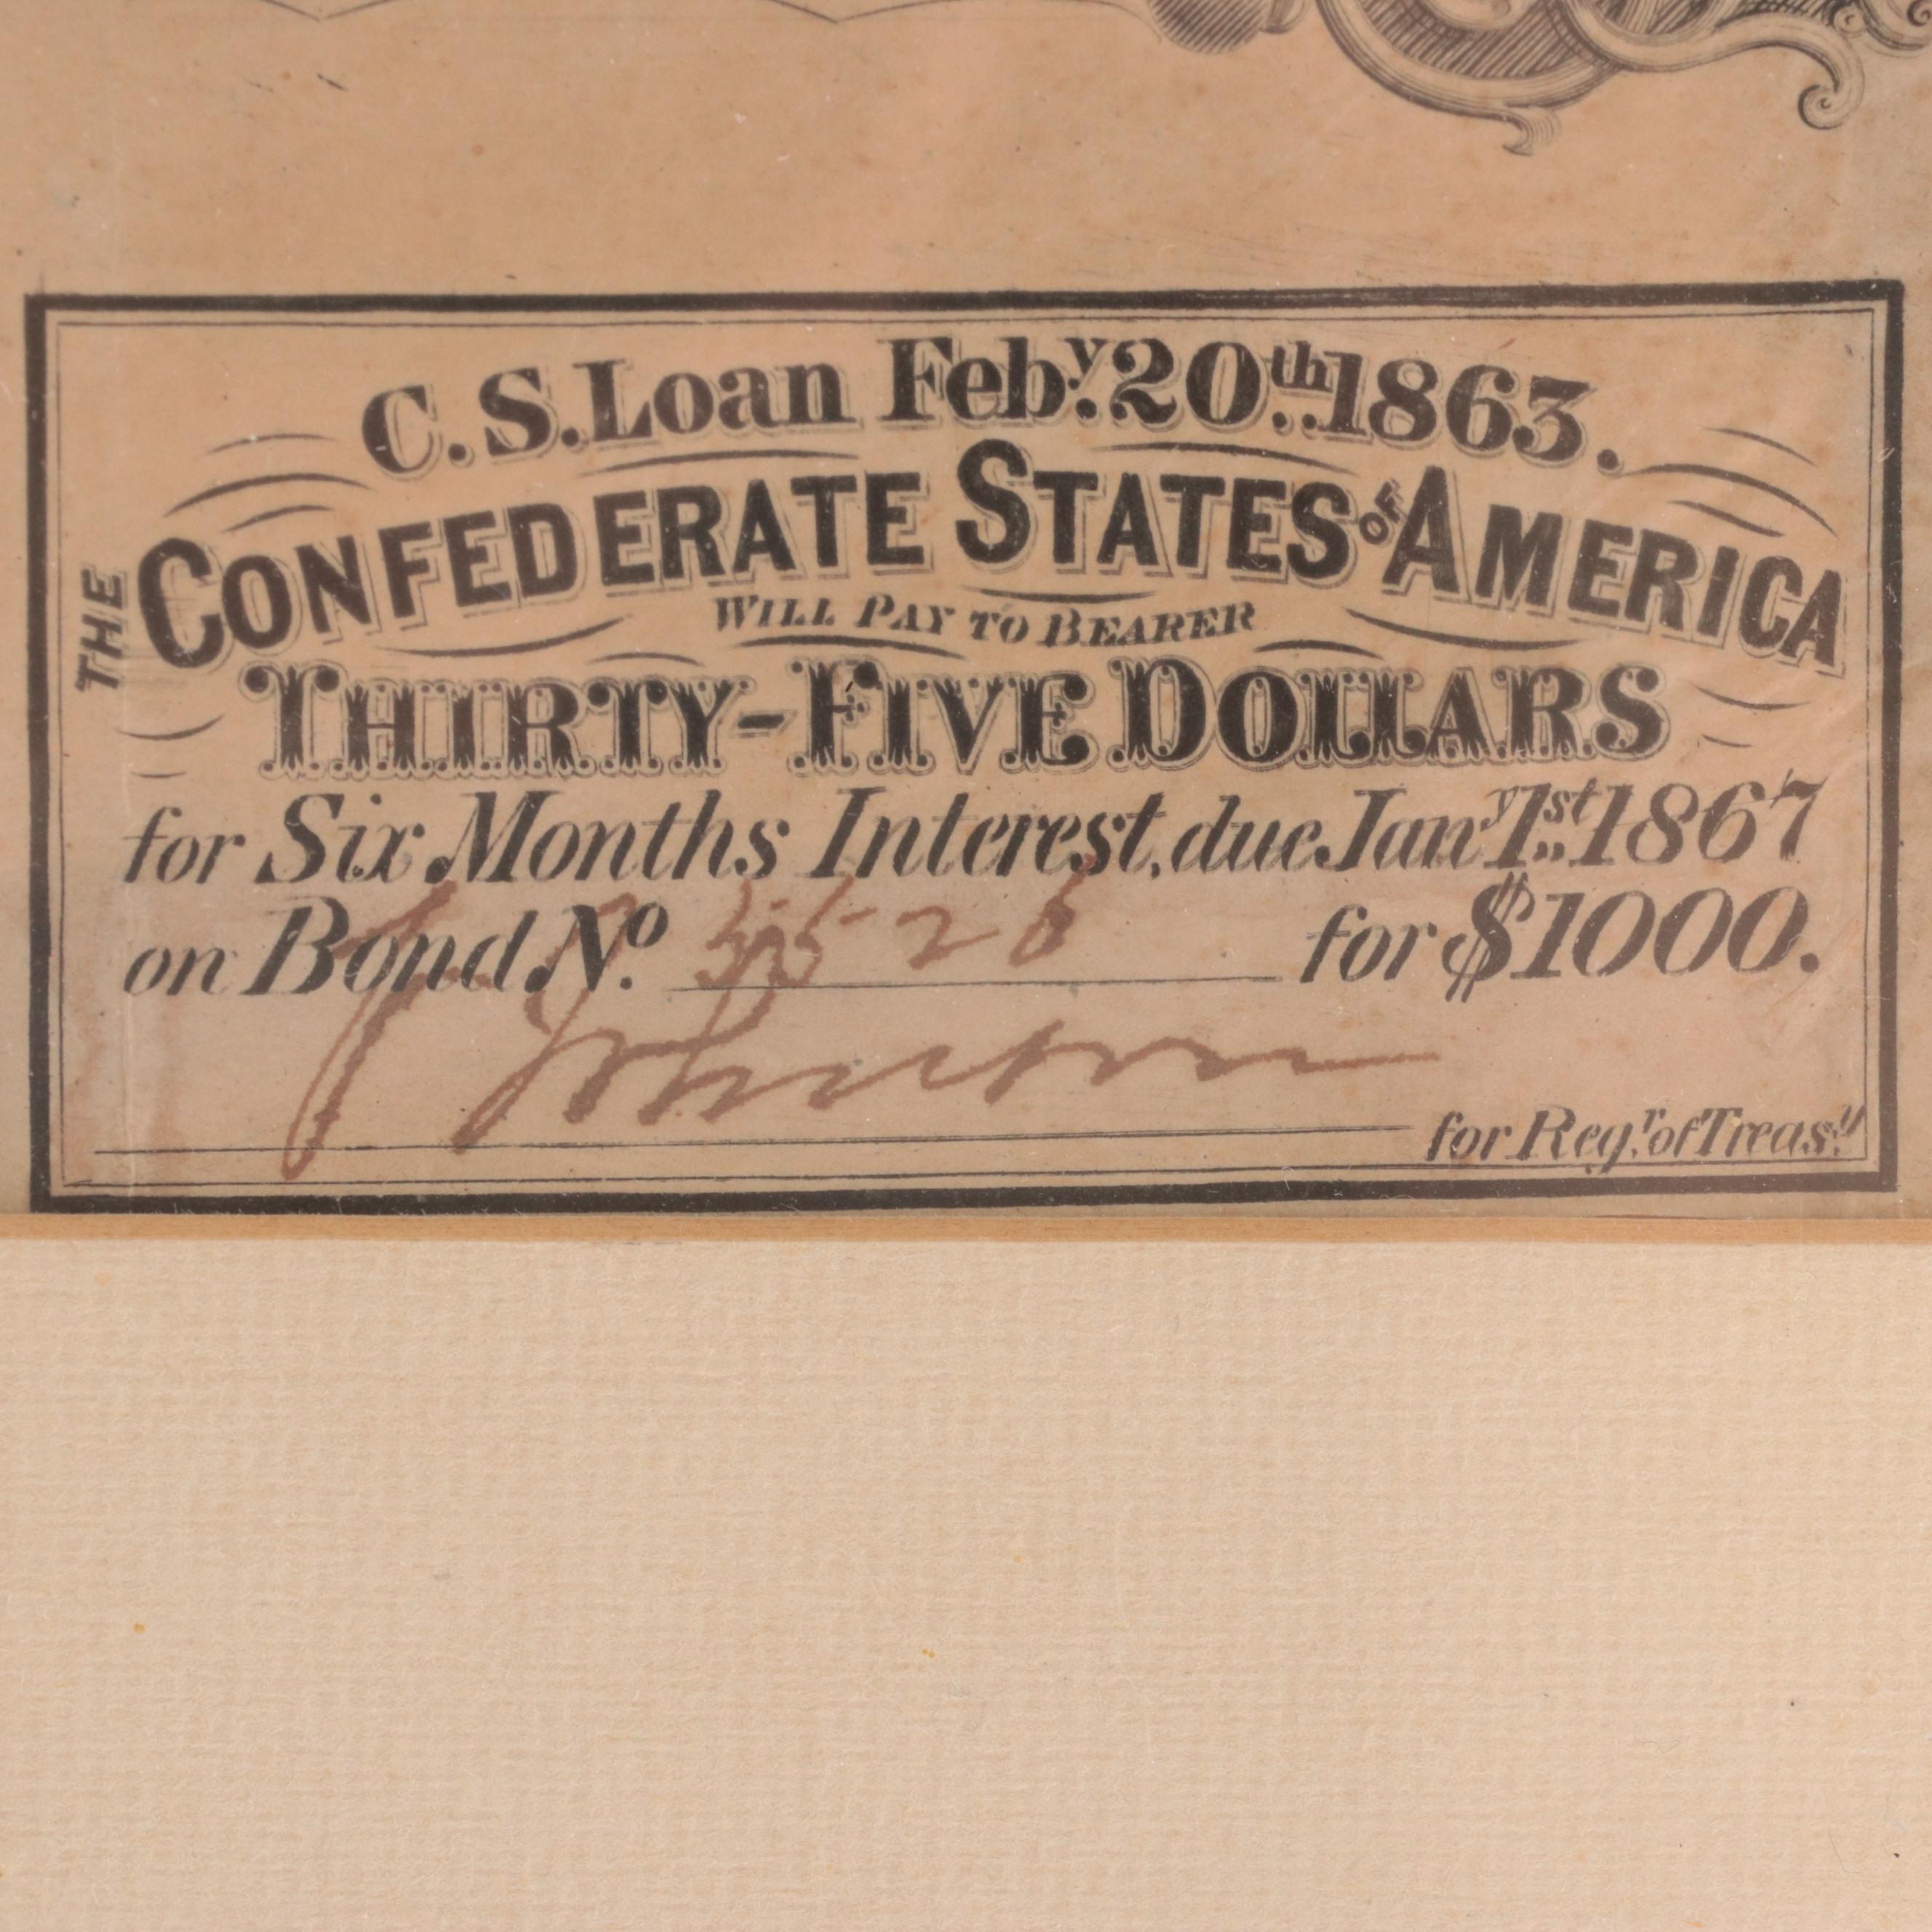 C. S. Loan Feby. 20th. 1863.
THE CONFEDERATE STATES OF AMERICA
WILL PAY TO BEARER
THIRTY-FIVE DOLLARS
for Six Months Interest, due Jany 1st. 1867
on Bond No. 5526 for $1000.
Johnson
for Regr. of Treasy.